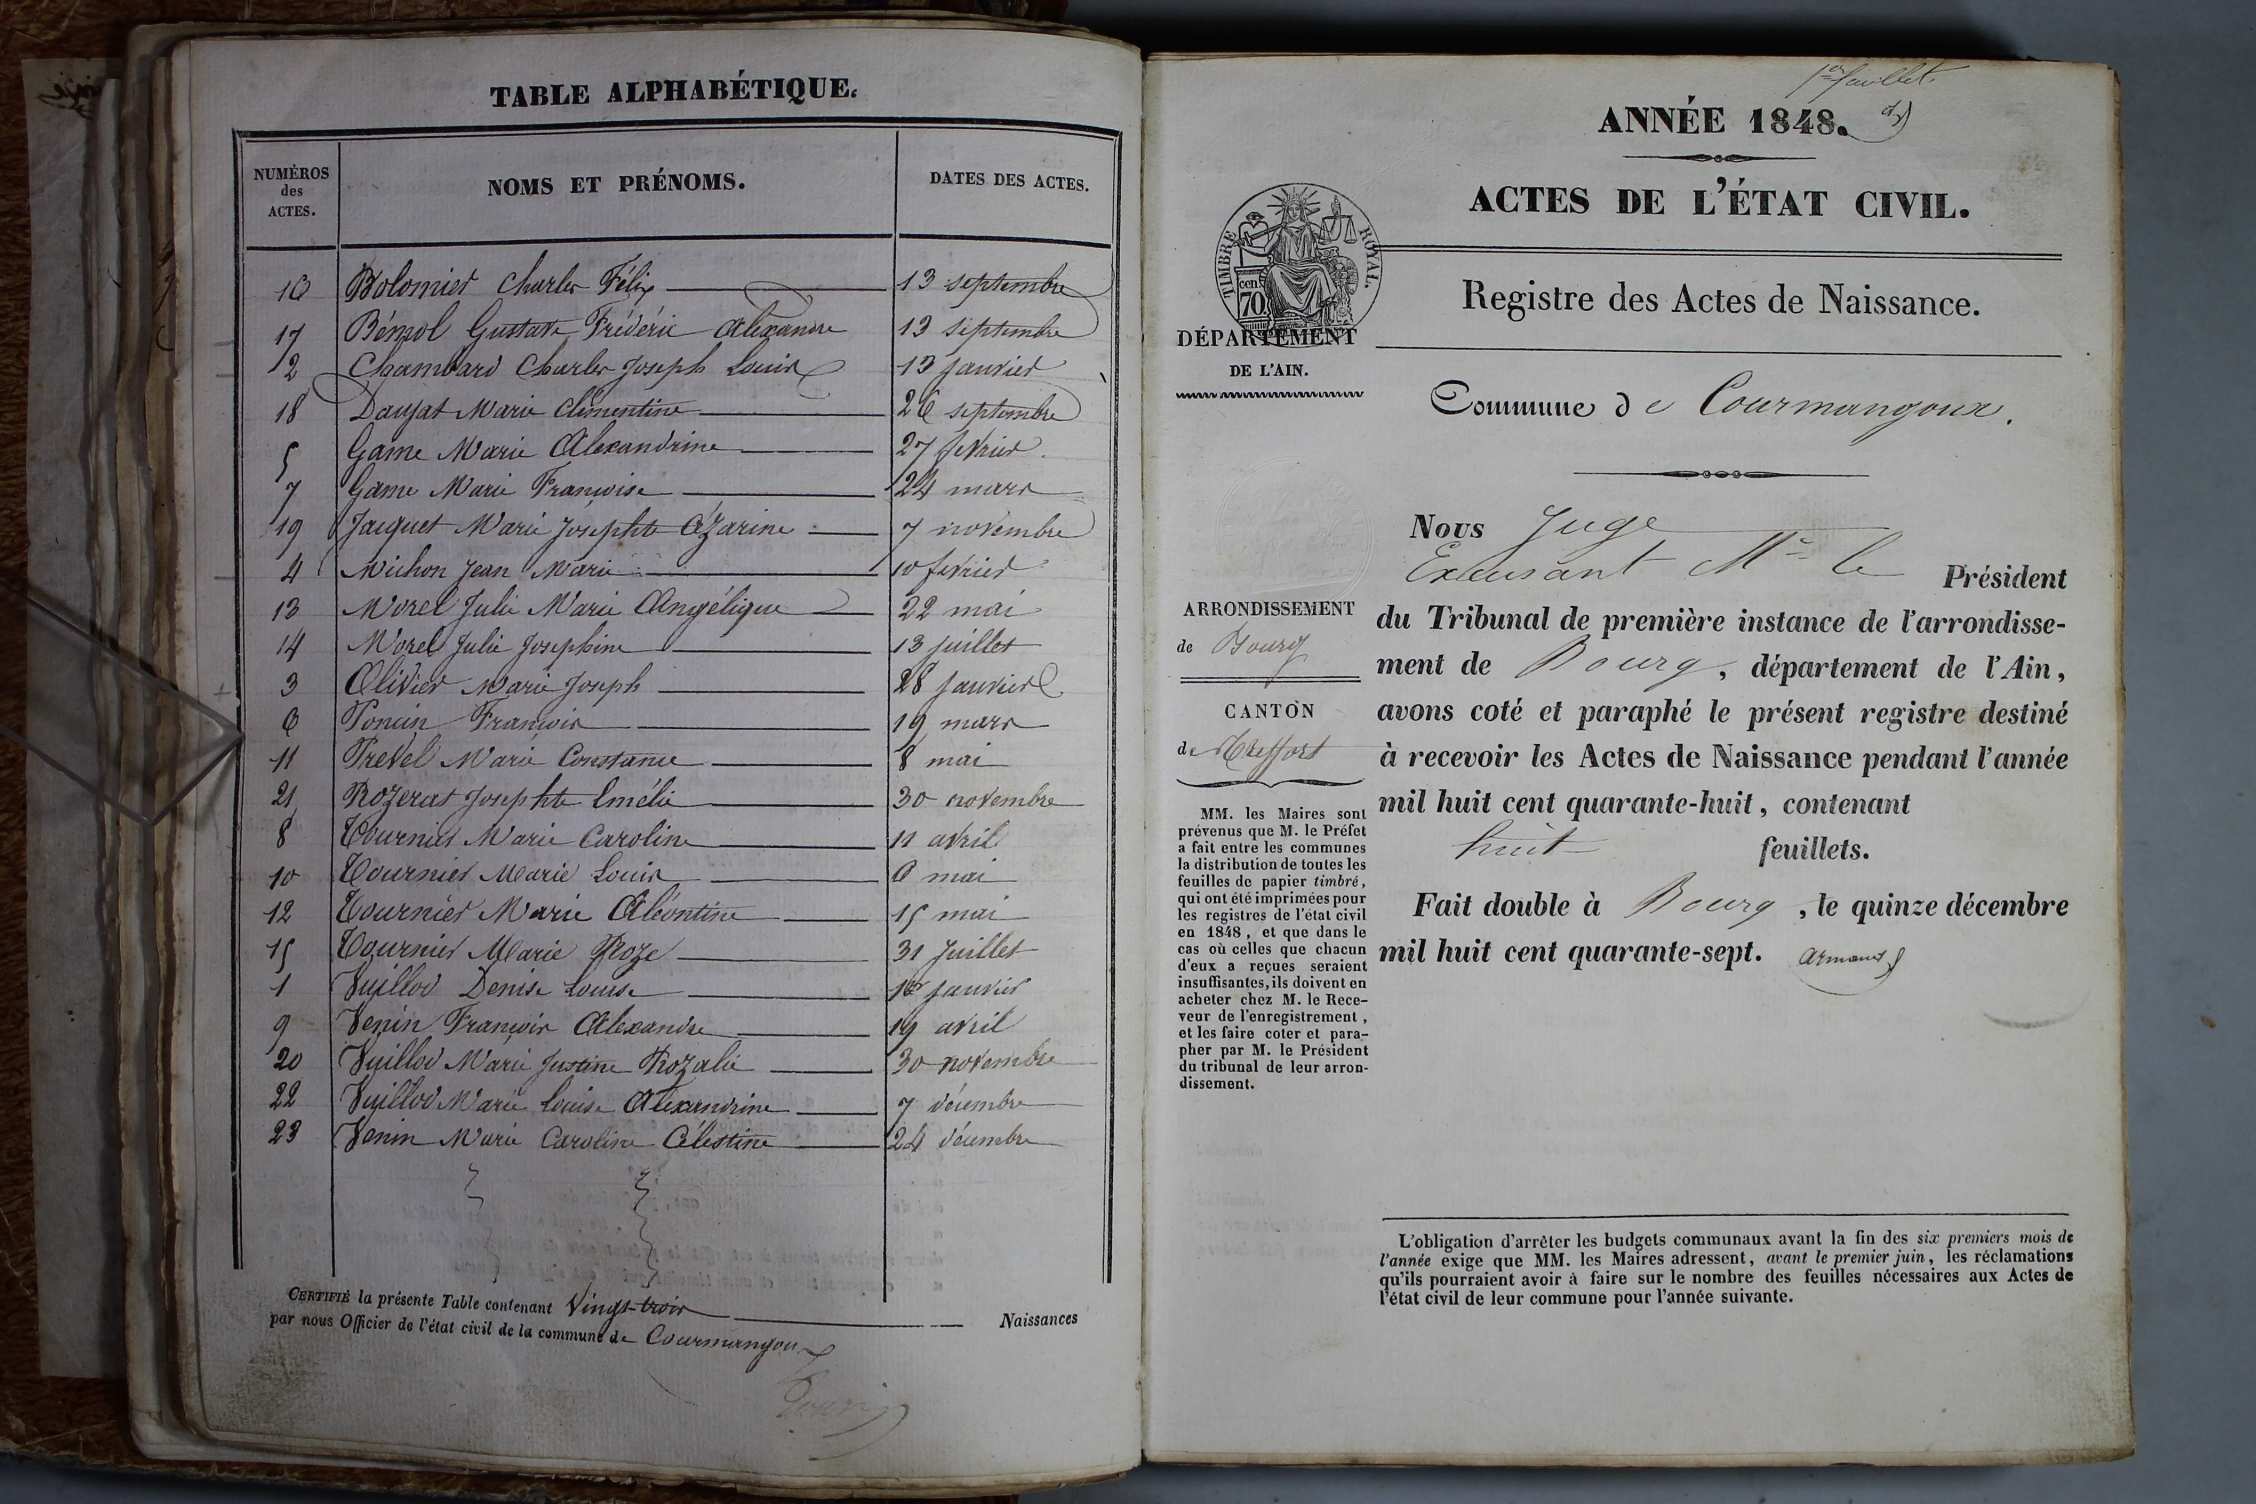 TABLE ALPHABÉTIQUE.
NUMÉROS des ACTES. NOMS ET PRÉNOMS. DATES DES ACTES.
16 Bolomier Charles Félix 13 septembre
17 Bémol Gustave Frédéric Alexandre 13 septembre
2 Chambard Charles Joseph Louis 13 janvier
18 Daujat Marie Clémentine 26 septembre
5 Game Marie Alexandrine 27 février
7 Game Marie Françoise 24 mars
19 Jacquet Marie Josephte Azarine 7 novembre
4 Michon Jean Marie 10 février
13 Morel Julie Marie Angélique 22 mai
14 Morel Julie Josephine 13 juillet
3 Olivier Marie Joseph 28 janvier
6 Poncin François 19 mars
11 Prevel Marie Constance 8 mai
21 Rozerat Josephte Emélie 30 novembre
8 Tournier Marie Caroline 11 avril
10 Tournier Marie Louis 6 mai
12 Tournier Marie Aléontine 15 mai
15 Tournier Marie Roze 31 Juillet
1 Vuillod Denise Louise 1er janvier
9 Venin François Alexandre 19 avril
20 Vuillod Marie Justine Rozalie 30 novembre
22 Vuillod Marie Louise Alexandrine 7 décembre
23 Venin Marie Caroline Célestine 24 décembre
CERTIFIÉ la présente Table contenant Vingt-trois Naissances
par nous Officier de l'état civil de la commune de Courmangoux
1er feuillet
ANNÉE 1848.
ACTES DE L'ÉTAT CIVIL.
TIMBRE ROYAL.
cen.
70.
Registre des Actes de Naissance.
DÉPARTEMENT
DE L'AIN.
Commune de Courmangoux.
ARRONDISSEMENT
de Bourg
CANTON
de Treffort
MM. les Maires sont
prévenus que M. le Préfet
a fait entre les communes
la distribution de toutes les
feuilles de papier timbré,
qui ont été imprimées pour
les registres de l'état civil
en 1848, et que dans le
cas où celles que chacun
d'eux a reçues seraient
insuffisantes, ils doivent en
acheter chez M. le Rece-
veur de l'enregistrement,
et les faire coter et para-
pher par M. le Président
du tribunal de leur arron-
dissement.
Nous Juge
Excusant Mr le Président
du Tribunal de première instance de l'arrondisse-
ment de Bourg, département de l'Ain,
avons coté et paraphé le présent registre destiné
à recevoir les Actes de Naissance pendant l'année
mil huit cent quarante-huit, contenant
huit feuillets.
Fait double à Bourg, le quinze décembre
mil huit cent quarante-sept. Armand
L'obligation d'arrêter les budgets communaux avant la fin des six premiers mois de
l'année exige que MM. les Maires adressent, avant le premier juin, les réclamations
qu'ils pourraient avoir à faire sur le nombre des feuilles nécessaires aux Actes de
l'état civil de leur commune pour l'année suivante.